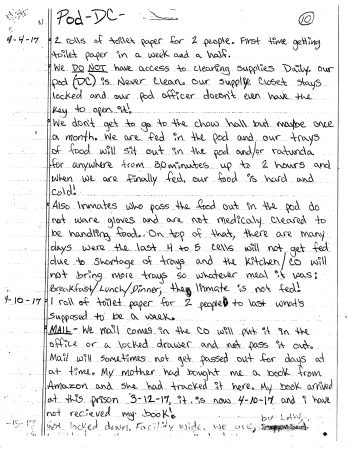 Pod-DC-
10
4-4-17 2 rolls of toilet paper for 2 people. First time getting
toilet paper in a week and a half.
We DO NOT have access to cleaning supplies Daily. our
pod (DC) is Never Clean. Our supply closet stays
locked and our pod officer doesn't even have the
key to open it!
We don't get to go to the chow hall but maybe once
a month. We are fed in the pod and our trays
of food will sit out in the pod and/or rotunda
for anywhere from 30 minutes up to 2 hours and
when we are finally fed, our food is hard and
cold!
Also Inmates who pass the food out in the pod do
not ware gloves and are not medicaly cleared to
be handling food. On top of that, there are many
days were the last 4 to 5 cells will not get fed
due to shortage of trays and the kitchen/CO will
not bring more trays so whatever meal it was:
Breakfast/Lunch/Dinner, the Inmate is not fed!
4-10-17 1 roll of toilet paper for 2 people to last what's
supposed to be a week.
MAIL - We mail comes in the CO will put it in the
office or a locked drawer and not pass it out.
Mail will sometimes not get passed out for days at
at time. My mother had bought me a book from
Amazon and she had tracked it here. My book arrived
at this prison 3-12-17, it is now 4-10-17 and i have
not recieved my book!
by Law,
not locked down. Facility wide. We use,